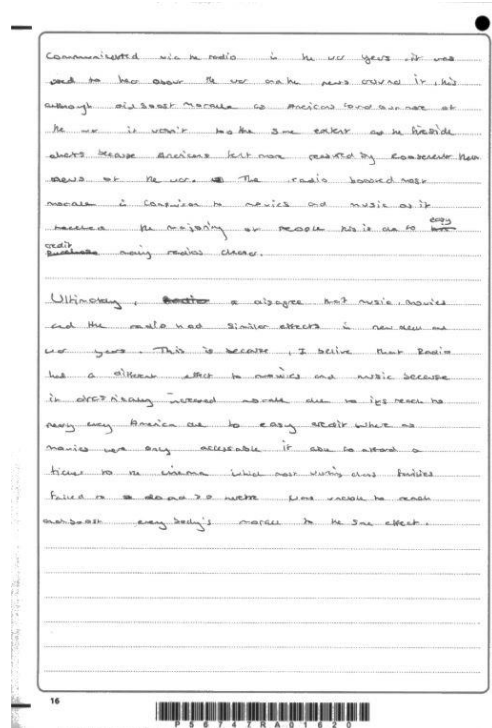 Communicated via he radio in he war years. it was
used to hear about the war and he news around it, his
although did boost morale as Americans found out more of
he war it wasn't to the same extent as he fireside
chats because Americans felt more by Roosevelt than
news of he war. The radio boosted most
morale in comparison to movies and music as it
reached the majority of people his is due to easy
credit many radios
Ultimately, a disagree that music, movies
and the radio had similar effects in new deal and
war years. This is because, I belive that Radio
has a different effect to movies and music because
it drastically increased morale due to its reach to
nearly every America due to easy credit where as
movies were only accessable if able to afford a
ticket to he cinema which most working class families
failed to Was unable to reach
and boost every body's morale to he same effect.
16
P56747RA01620